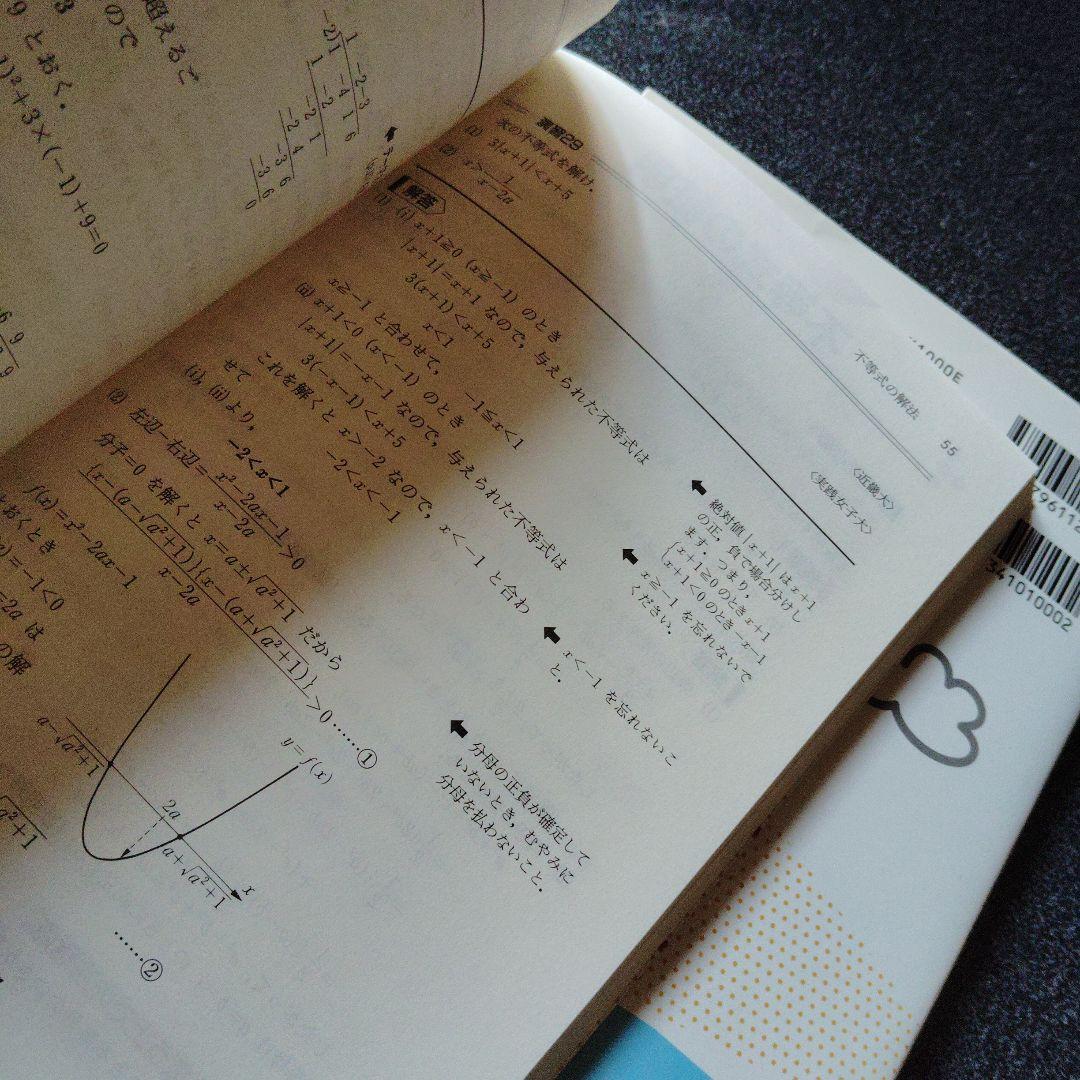 超えるご
ので
とおく．
1)²+3×(−1)+9=0
−2) 1 −2 −3
1 −4 1 6
1 −2
−2 1
−2 4
−3 6
−3 6
0
不等式の解法 55
演習29
次の不等式を解け．
(1) 3|x+1|<x+5 〈近畿大〉
(2) x>1/(x−2a) 〈実践女子大〉
解答
(1) (i) x+1≧0 (x≧−1) のとき
|x+1|=x+1 なので，与えられた不等式は
3(x+1)<x+5
x<1
x≧−1 と合わせて， −1≦x<1
(ii) x+1<0 (x<−1) のとき
|x+1|=−x−1 なので，与えられた不等式は
3(−x−1)<x+5
これを解くと x>−2 なので， x<−1 と合わ
せて −2<x<−1
(i), (ii) より， −2<x<1
(2) 左辺−右辺=(x²−2ax−1)/(x−2a)>0
分子=0 を解くと x=a±√(a²+1) だから
{x−(a−√(a²+1))}{x−(a+√(a²+1))}/(x−2a)>0 ……①
f(x)=x²−2ax−1
おくとき
)=−1<0
=2a は
の解
絶対値|x+1|はx+1
の正，負で場合分けし
ます．つまり，
{x+1≧0のときx+1
x+1<0のとき−x−1
x≧−1 を忘れないで
ください．
x<−1 を忘れないこ
と．
分母の正負が確定して
いないとき，むやみに
分母を払わないこと．
y=f(x)
a−√(a²+1)
2a
a+√(a²+1)
x
……②
1000E
79611
341010002